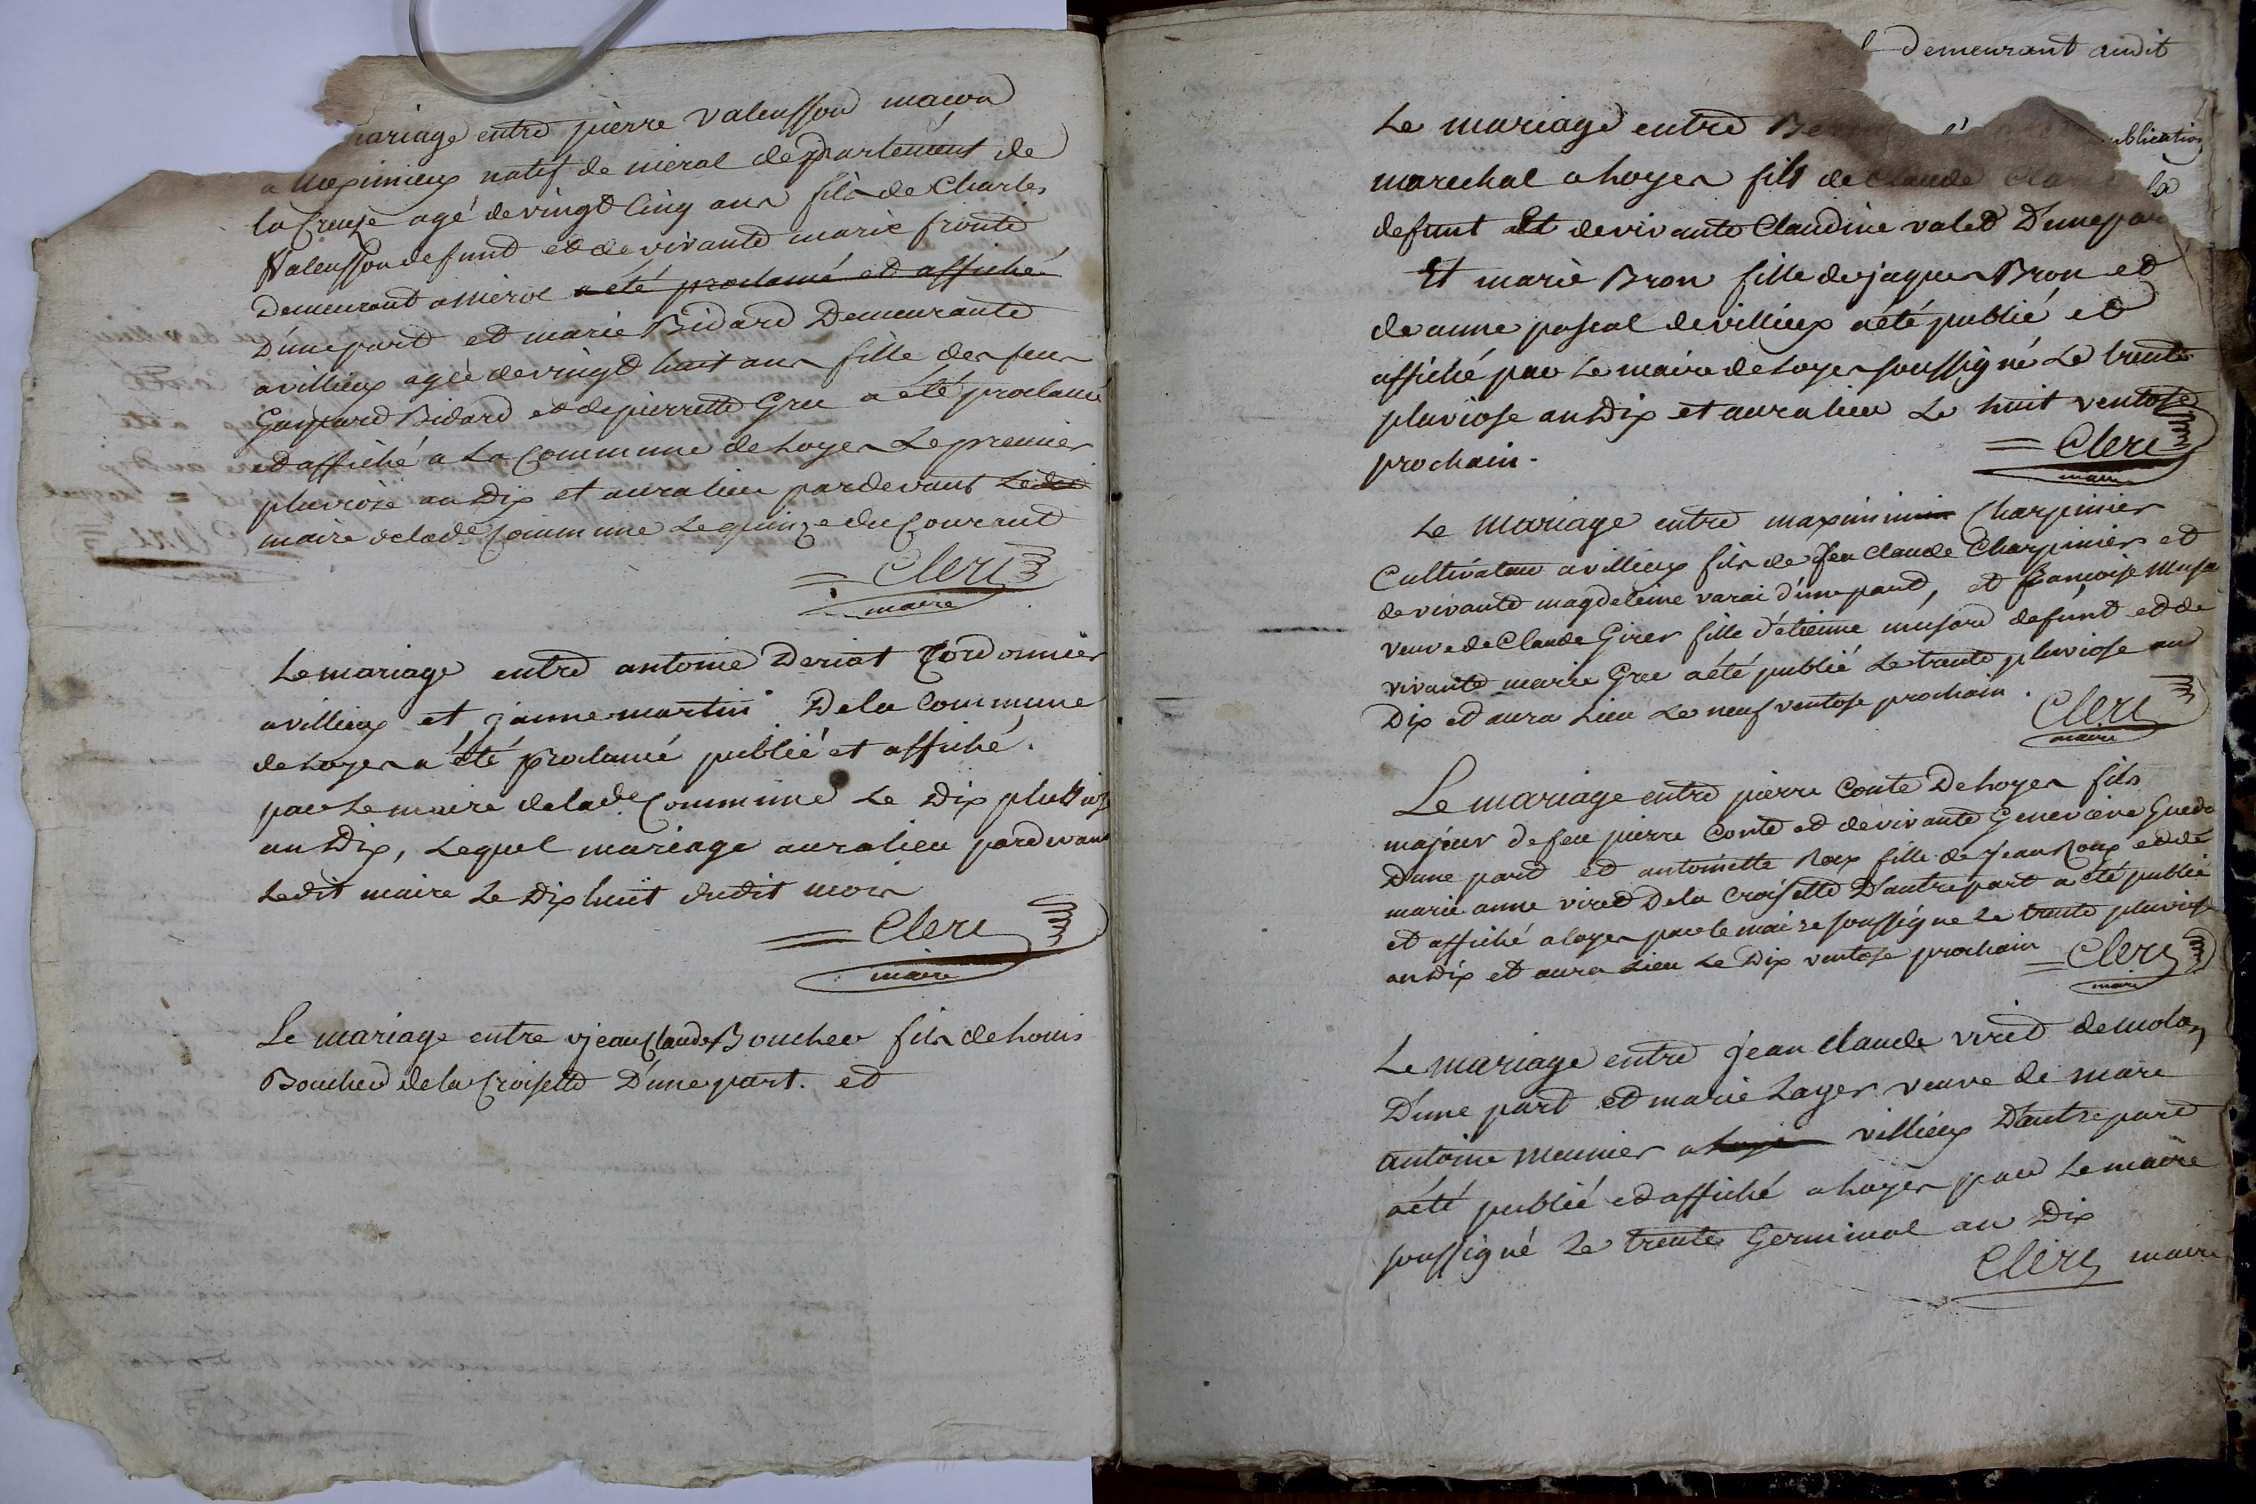 mariage entre pierre valeusson maçon
a Meximieux natif de mérol departement de
la Creuse agé de vingt Cinq ans fils de Charles
valeusson defunt et de vivante marie fronte
Demeurant a mérol a été proclamé et affiché
D'une part et marie Bidard Demeurante
a villieux agée de vingt huit ans fille des feus
Gaspard Bidard et de pierrette Gree a été proclamé
et affiché a La Commune de Loyes Le premier
pluviose an Dix et aura lieu pardevant Le
maire de lade Commune Le quinze du Courant
= Clerc
maire
Le mariage entre antoine Deriat Cordonnier
a villieux et jeanne martin De la Commune
de Loyes a été proclamé publié et affiché
par Le maire de lade Commune Le Dix pluviose
an Dix, Lequel mariage aura lieu pardevant
Ledit maire Le Dix huit dudit mois
= Clerc
maire
Le mariage entre jean Claude Boucher fils de Louis
Boucher de la Croisette D'une part. et
demeurant audit
Le mariage entre
publication
marechal a Loyes fils de Claude
la
defunt et de vivante Claudine valet D'une par
Et marie Bron fille de jaques Bron et
de anne pascal de villieux a été publié et
affiché par Le maire de Loyes soussigné Le trente
pluviose an Dix et aura lieu Le huit ventose
prochain.
= Clerc
maire
Le mariage entre maximin Charpinier
Cultivateur a villieux fils de feu Claude Charpinier et
de vivante magdeleine varai d'une part, et françoise Musa
veuve de Claude Girer fille d'etienne musard defunt et de
vivante marie Gree a été publié Le trente pluviose an
Dix et aura Lieu Le neuf ventose prochain.
Clerc
maire
Le mariage entre pierre Conte De Loyes fils
majeur de feu pierre Conte et de vivante Genevieve Guedo
D'une part et antoinette Roux fille de jean Roux et de
marie anne viret De la Croisette D'autre part a été publié
et affiché a Loyes par le maire soussigné Le trente pluviose
an Dix et aura Lieu Le Dix ventose prochain
= Clerc
maire
Le mariage entre jean Claude viret de molon
D'une part et marie Layer veuve de marc
antoine Meunier a Loyes villieux D'autre part
a été publié et affiché a Loyes par Le maire
soussigné Le trente Germinal an Dix
Clerc maire